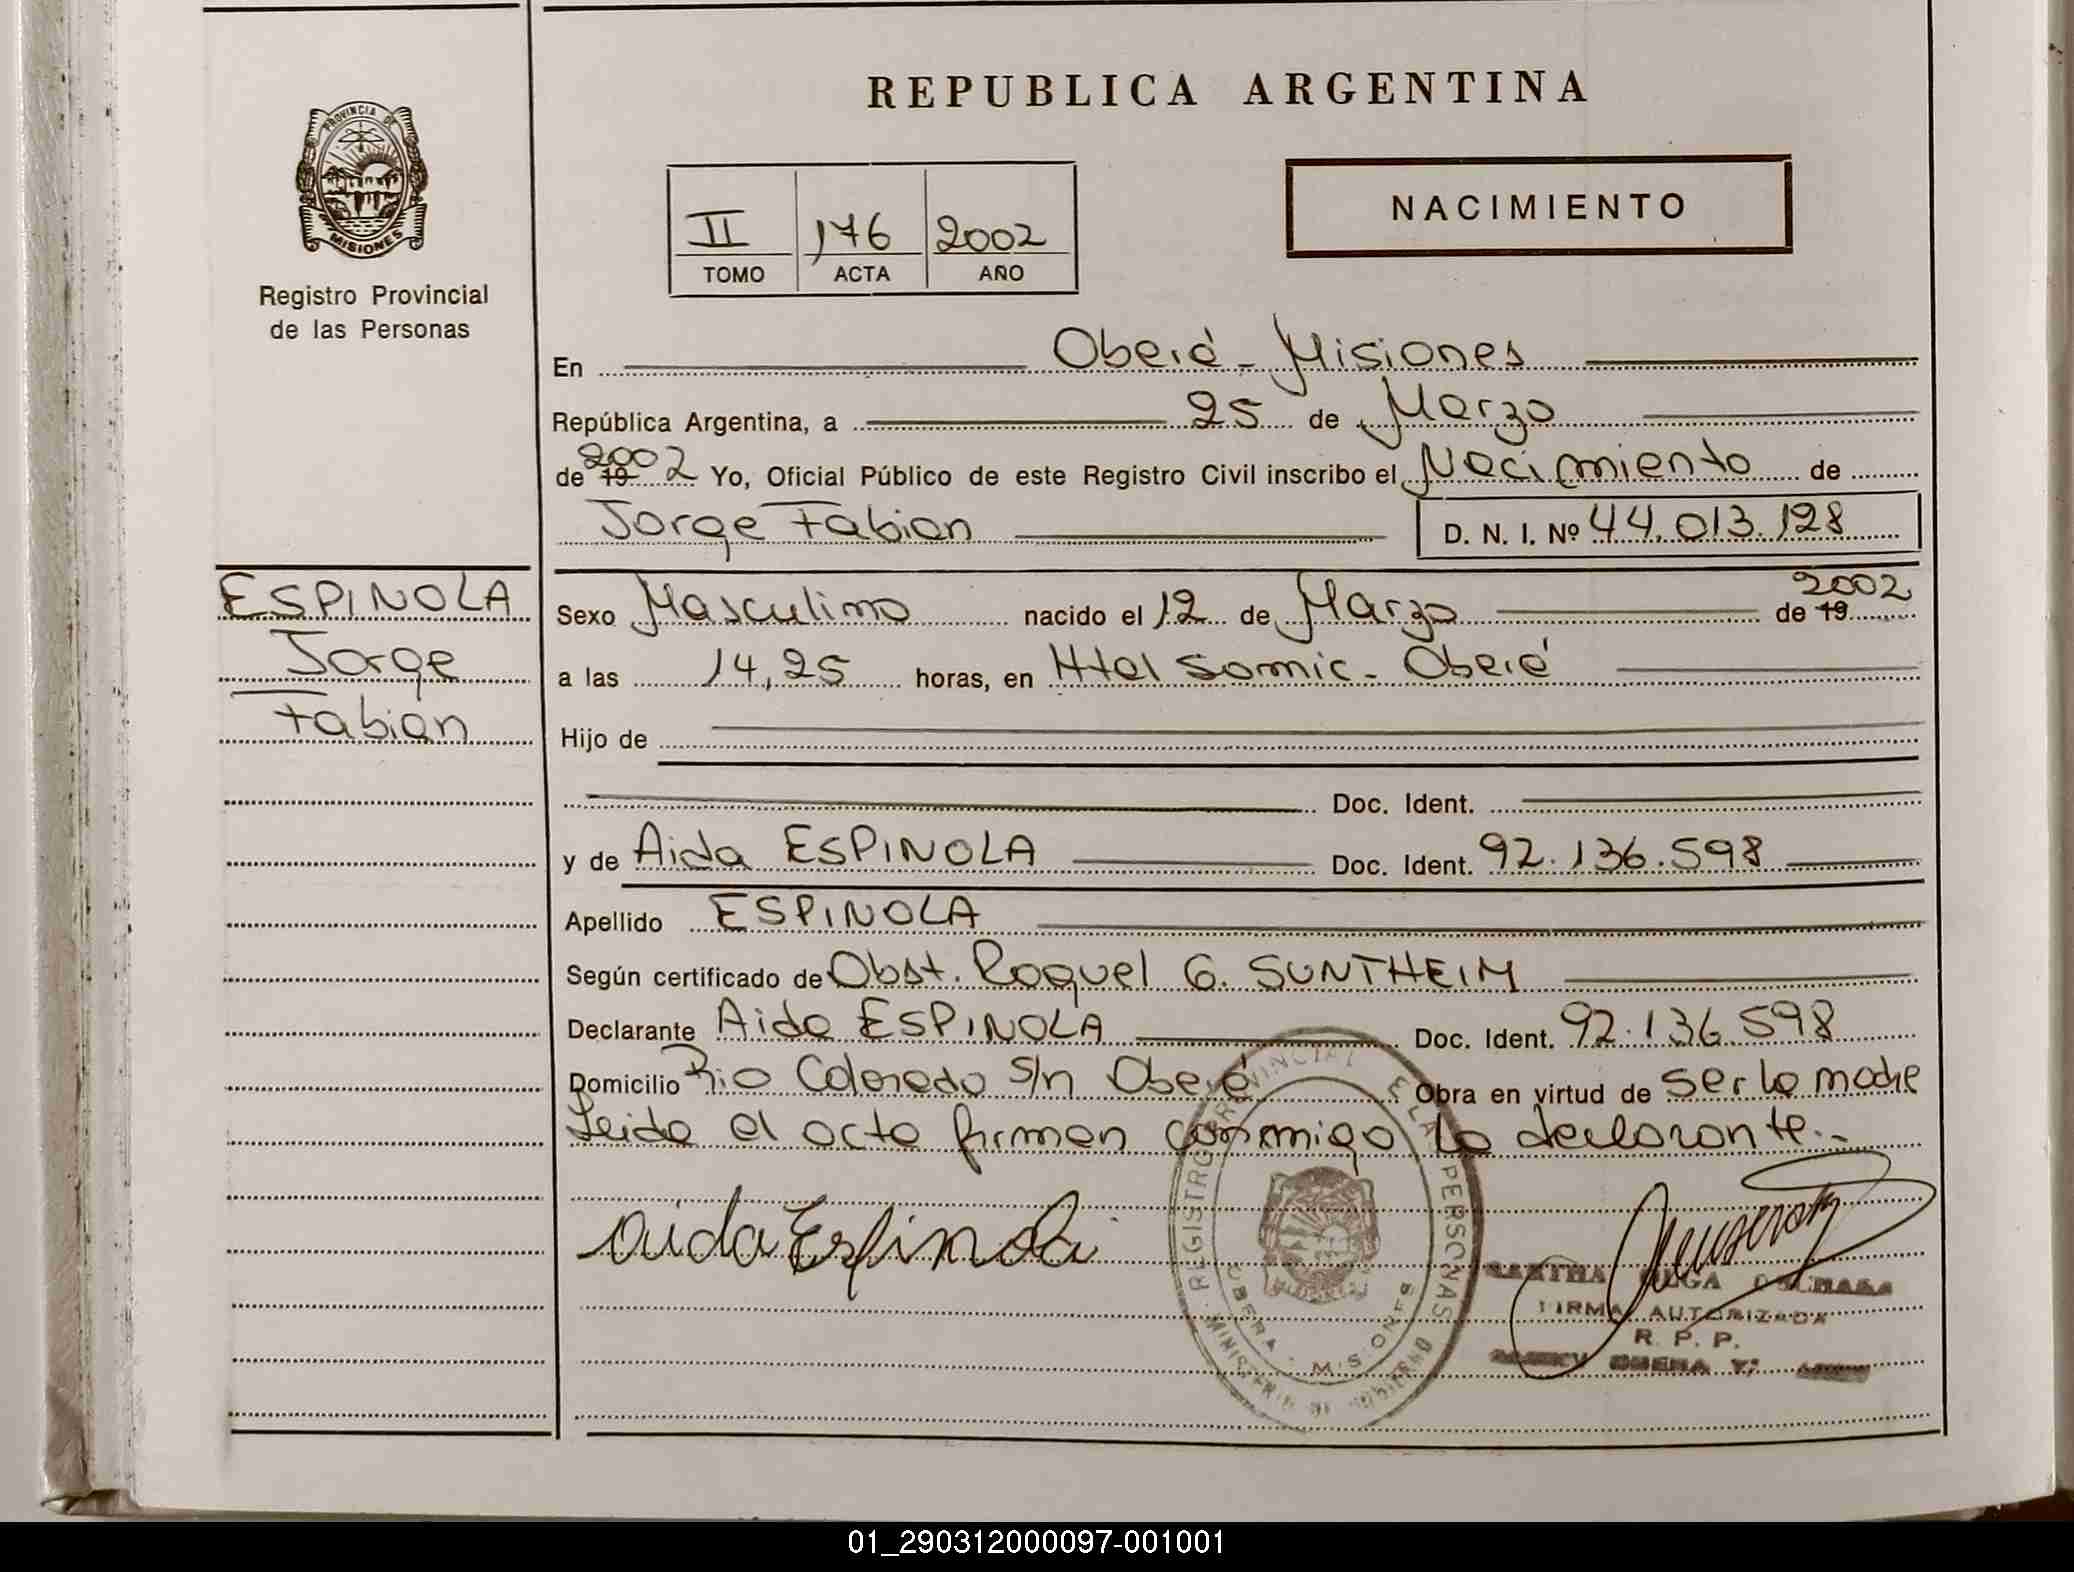 REPUBLICA ARGENTINA
PROVINCIA DE
MISIONES
Registro Provincial
de las Personas
II 176 2002
TOMO ACTA AÑO
NACIMIENTO
En Oberá - Misiones
República Argentina, a 25 de Marzo
de 19 2002 Yo, Oficial Público de este Registro Civil inscribo el Nacimiento de
Jorge Fabian D. N. I. Nº 44.013.128
ESPINOLA
Jorge
Fabian
Sexo Masculino nacido el 12 de Marzo de 19 2002
a las 14,25 horas, en Htal Samic - Oberá
Hijo de
Doc. Ident.
y de Aida ESPINOLA Doc. Ident. 92.136.598
Apellido ESPINOLA
Según certificado de Obst. Raquel G. SUNTHEIM
Declarante Aida ESPINOLA Doc. Ident. 92.136.598
Domicilio Rio Colorado S/n Oberá Obra en virtud de ser la madre
Leida el acta firman conmigo la declarante.-
Aida Espinola
REGISTRO PROVINCIAL PERSONAS
OBERA - MISIONES
FIRMA AUTORIZADA
R. P. P.
01_290312000097-001001